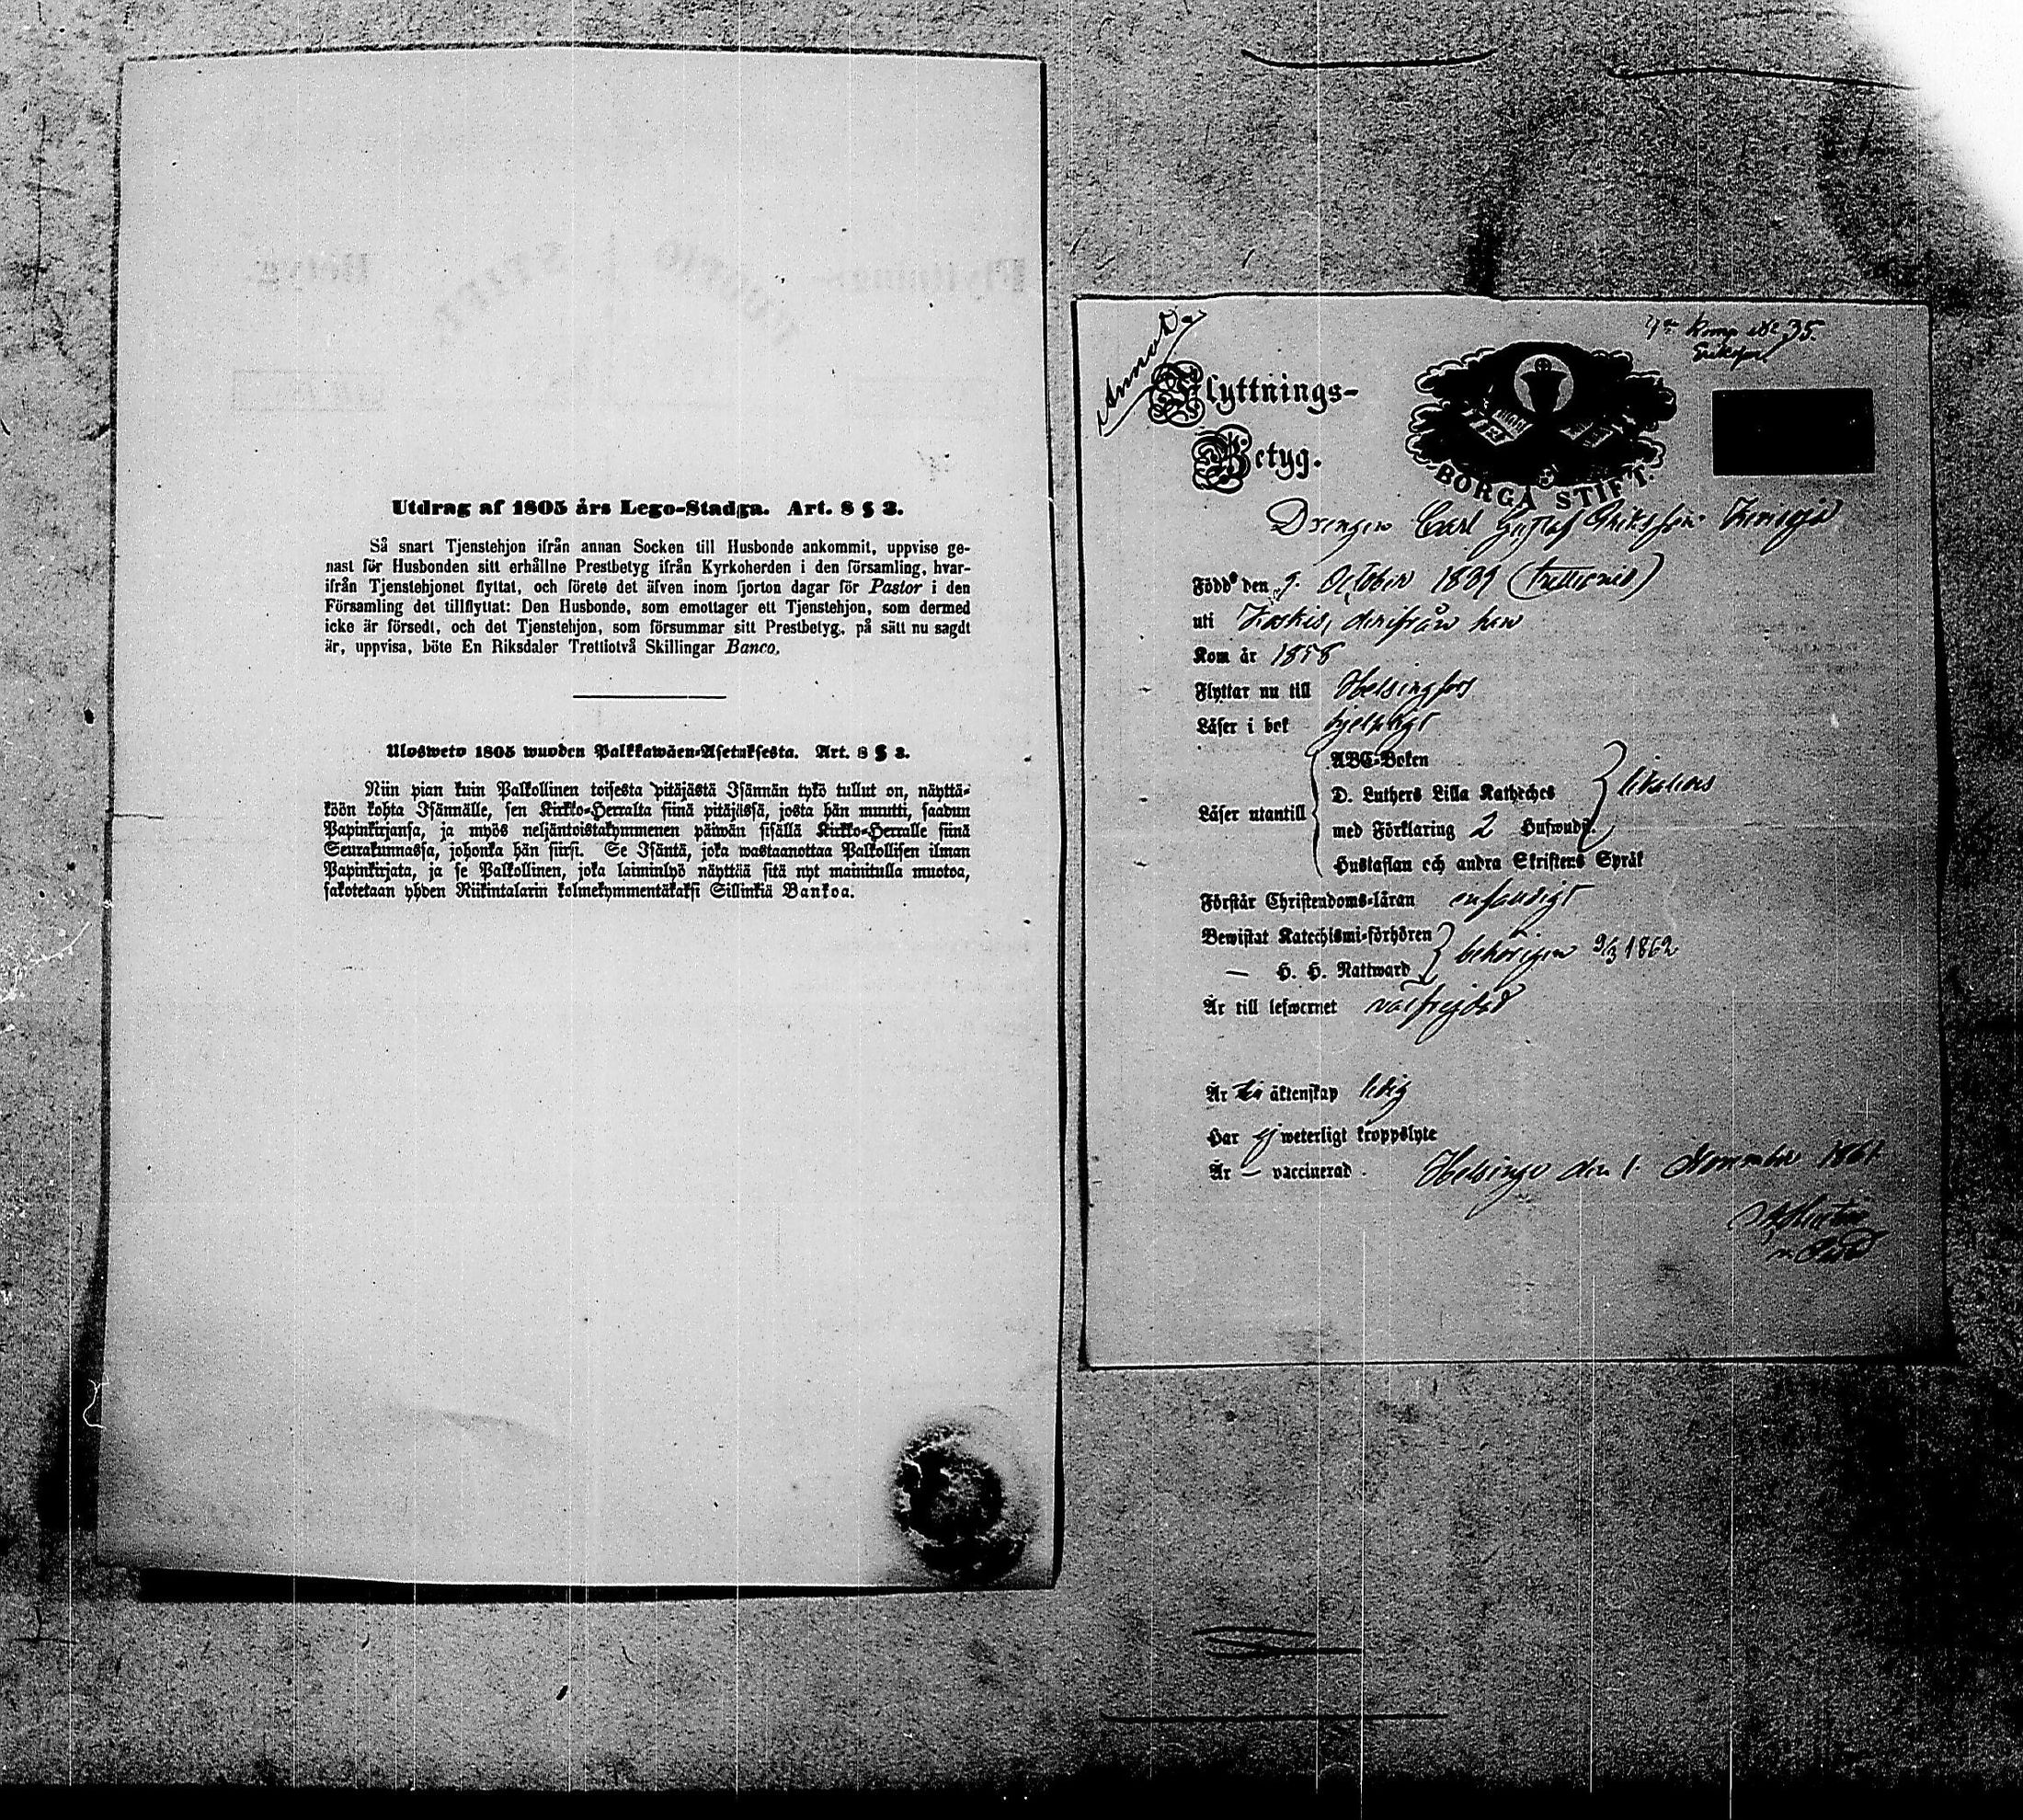 Utdrag af 1805 års Lego-Stadga. Art. 8 § 3.
Så snart Tjenstehjon ifrån annan Socken till Husbonde ankommit, uppvise ge-
nast för Husbonden sitt erhållne Prestbetyg ifrån Kyrkoherden i den församling, hvar-
ifrån Tjenstehjonet flyttat, och förete det äfven inom fjorton dagar för Pastor i den
Församling det tillflyttat: Den Husbonde, som emottager ett Tjenstehjon, som dermed
icke är försedt, och det Tjenstehjon, som försummar sitt Prestbetyg, på sätt nu sagdt
är, uppvisa, böte En Riksdaler Trettiotvå Skillingar Banco.
Ulosweto 1805 wuoden Palkkawäen-Asetuksesta. Art. 8 § 3.
Niin pian kuin Palkollinen toisesta pitäjästä Isännän tykö tullut on, näyttä-
köön kohta Isännälle, sen Kirkko-Herralta siinä pitäjässä, josta hän muutti, saadun
Papinkirjansa, ja myös neljäntoistakymmenen päiwän sisällä Kirkko-Herralle siinä
Seurakunnassa, johonka hän siirsi. Se Isäntä, joka wastaanottaa Palkollisen ilman
Papinkirjata, ja se Palkollinen, joka laiminlyö näyttää sitä nyt mainitulla muotoa,
sakotetaan yhden Riikintalarin kolmekymmentäkaksi Sillinkiä Bankoa.
Komp № 35.
Flyttnings-
Betyg.
BORGÅ STIFT.
Drengen Carl Gustaf Eriksson
Född den 9. October 1839 (trettionio)
uti derifrån han
Kom år 1858
Flyttar nu till Helsingfors
Läser i bok hjelpligt
Läser utantill
ABC-Boken
D. Luthers Lilla Kateches likaledes
med Förklaring 2 Hufwudst.
Hustaflan och andra Skriftens Språk
Förstår Christendoms-läran enfaldigt
Bewistat Katechismi-förhören
behörigen 9/3 1862
— H. H. Nattward
Är till lefwernet välfrejdad
Är till äktenskap ledig
Har ej weterligt kroppslyte
Är — vaccinerad. Helsinge den 1. November 1862